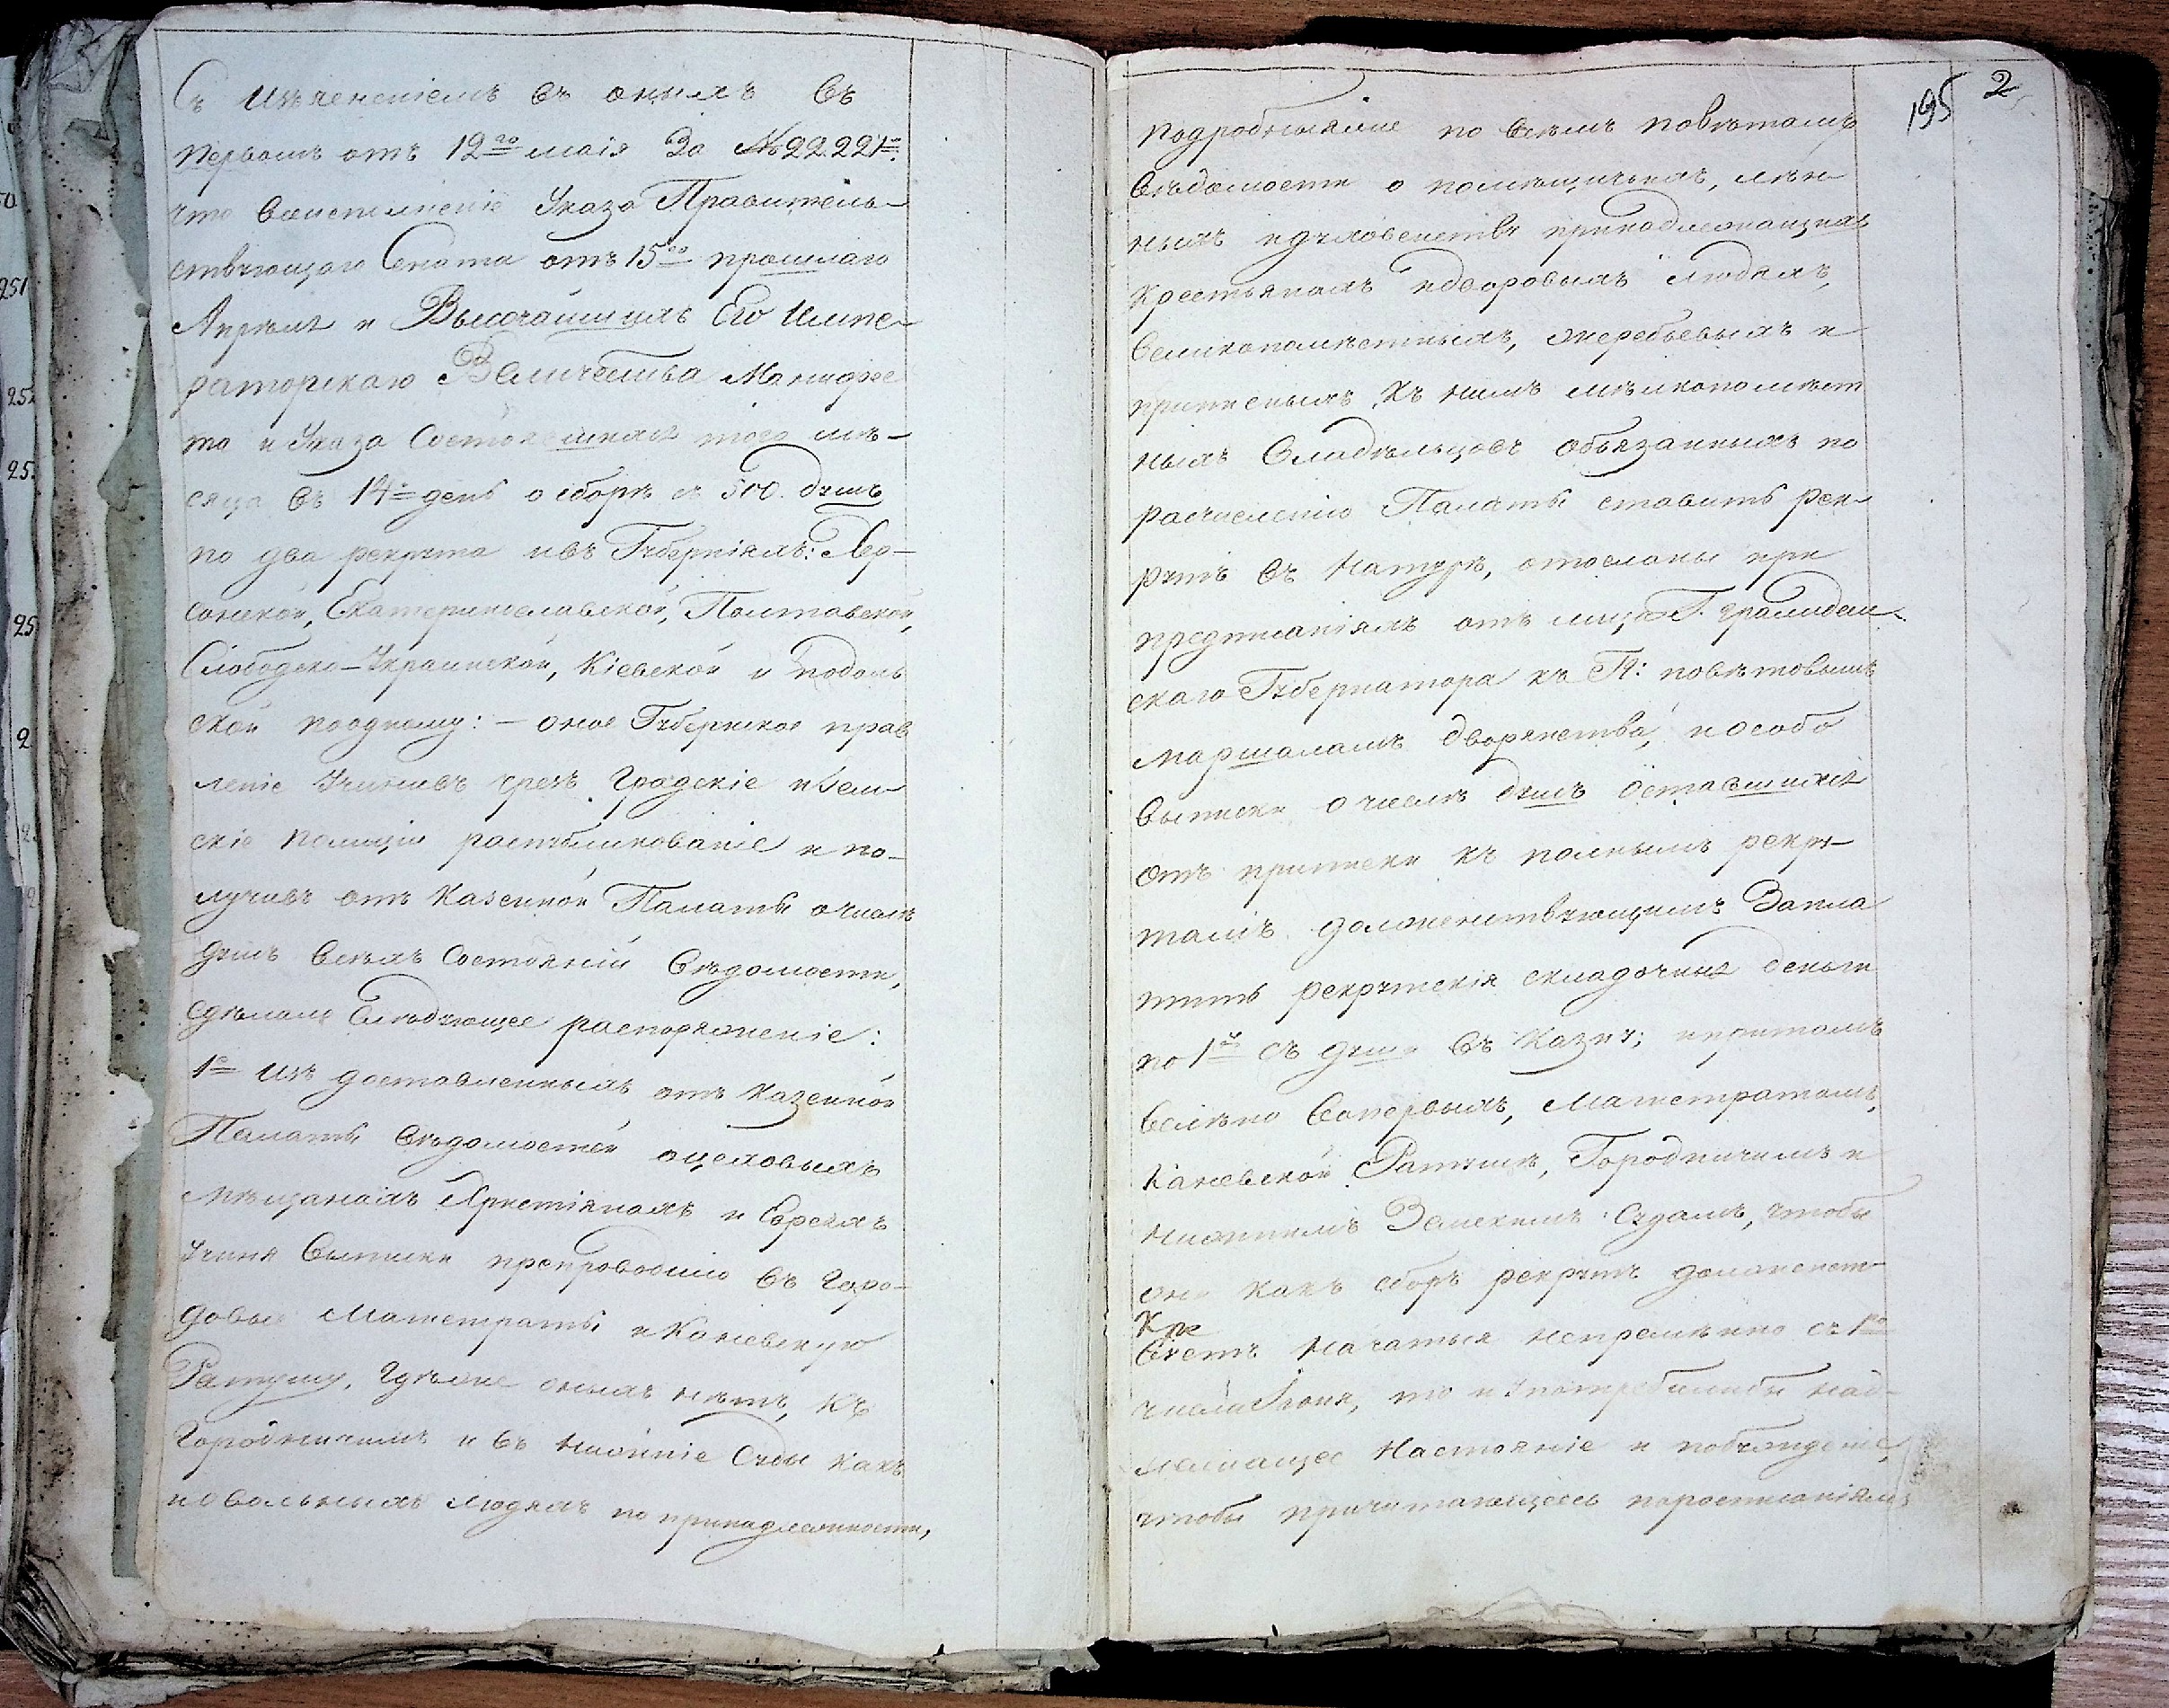 Съ изъясненіемъ въ оныхъ въ
первомъ отъ 12го маія За № 22.221м:
что воисполненіе Указа Правитель-
ствующаго Сената отъ 15го прошлаго
Апрѣля и Высочайшихъ Его Импе-
раторскаго Величества Манифес
та и Указа Состоявшихся того мѣ-
сяца въ 14й день о сборѣ съ 500. душъ
по два рекрута ивъ Губерніяхъ: Хер-
сонской, Екатеринославской, Полтавской,
Слободско-Украинской, Кіевской и Подоль
ской поодному: - оное Губернское прав
леніе Учинивъ чрезъ Градскіе и Зем-
скіе полиціи распубликованіе и по-
лучивъ отъ Казенной Палаты очислѣ
душъ всѣхъ Состояній вѣдомости,
сдѣлало Слѣдующее распоряженіе:
1е Изъ доставленныхъ отъ Казенной
Палаты вѣдомостей оцеховыхъ
мѣщанахъ Христіянахъ и Евреяхъ
Учиня выписки препроводило въ Горо-
довые Магистраты и Каневскую
Ратушу, Гдѣже оныхъ нѣтъ, къ
Городничимъ и въ Нижніе Суды какъ
и овольныхъ людяхъ по принадлежности,
195 2
подробнѣйшие по всѣмъ повѣтамъ
Вѣдомости о помѣщичьихъ, лѣн-
ныхъ идуховенству принадлежащихъ
крестьянахъ идворовыхъ людяхъ,
великопомѣстныхъ, жеребьевыхъ и
приписныхъ къ нимъ мѣлкопомѣст
ныхъ владѣльцовъ обязанныхъ по
расчисленію Палаты ставить рек-
рутъ въ натурѣ, отосланы при
предписаніяхъ отъ лица Г. Гражддан
скаго Губернатора къ ГГ: повѣтовымъ
маршаламъ дворянства, и особо
выписки очислѣ душъ оставшихся
отъ приписки къ полнымъ рекру-
тамъ долженствующимъ Запла
тить рекрутскія складочныя деньги
по 1й съ души въ Казну; ипритомъ
велѣно Вопервыхъ, Магистратамъ,
Каневской Ратушѣ, Городничимъ и
Нижнимъ Земскимъ Судамъ, чтобы
они какъ сборъ рекрутъ долженст-
вуетъ начатыя непремѣнно съ 1го
числа Іюня, то и употребилибы над-
лежащее настояніе и побужденіе,
чтобы причитающееся поросписаніямъ